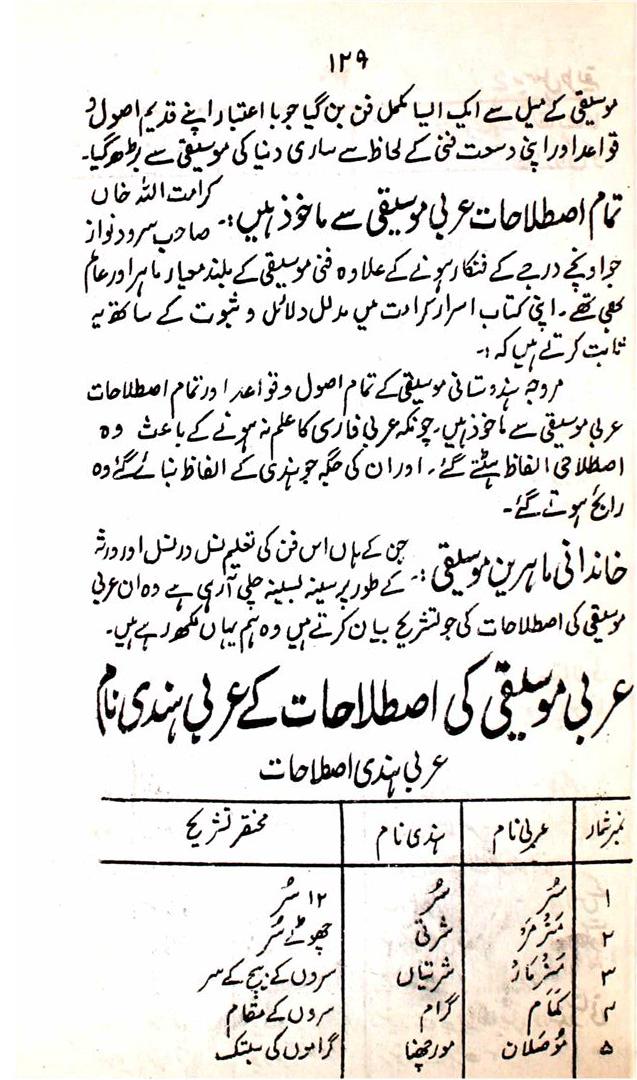 ۱۲۹
موسیقی کے میل سے ایک ایسا مکمل فن بن گیا جو با اعتبار اپنے قدیم اصول و
قواعد اور اپنی وسعت فنی کے لحاظ سے ساری دنیا کی موسیقی سے بڑھ گیا۔
تمام اصطلاحات عربی موسیقی سے ماخوذ ہیں:۔ کرامت اللہ خاں
صاحب سرود نواز
جو اونچے درجے کے فنکار ہونے کے علاوہ فنی موسیقی کے بلند معیار ماہر اور عالم
بھی تھے۔ اپنی کتاب اسرار کرامت میں مدلل دلائل و ثبوت کے ساتھ یہ
ثابت کرتے ہیں کہ:۔
مروجہ ہندوستانی موسیقی کے تمام اصول و قواعد اور تمام اصطلاحات
عربی موسیقی سے ماخوذ ہیں۔ چونکہ عربی فارسی کا علم نہ ہونے کے باعث وہ
اصطلاحی الفاظ ہٹتے گئے۔ اور ان کی جگہ جو ہندی کے الفاظ بنائے گئے وہ
رائج ہوتے گئے۔
خاندانی ماہرین موسیقی:۔ جن کے ہاں اس فن کی تعلیم نسل در نسل اور ورثہ
کے طور پر سینہ بسینہ چلی آ رہی ہے وہ ان عربی
موسیقی کی اصطلاحات کی جو تشریح بیان کرتے ہیں وہ ہم یہاں لکھ رہے ہیں۔
عربی موسیقی کی اصطلاحات کے عربی ہندی نام
عربی ہندی اصطلاحات
نمبر شمار عربی نام ہندی نام مختصر تشریح
۱ سُر سُر ۱۲ سُر
۲ شرتی چھوٹے سُر
۳ شرتیاں سروں کے بیچ کے سر
۴ گرام سروں کے مقام
۵ مورچھنا گراموں کی سپتک